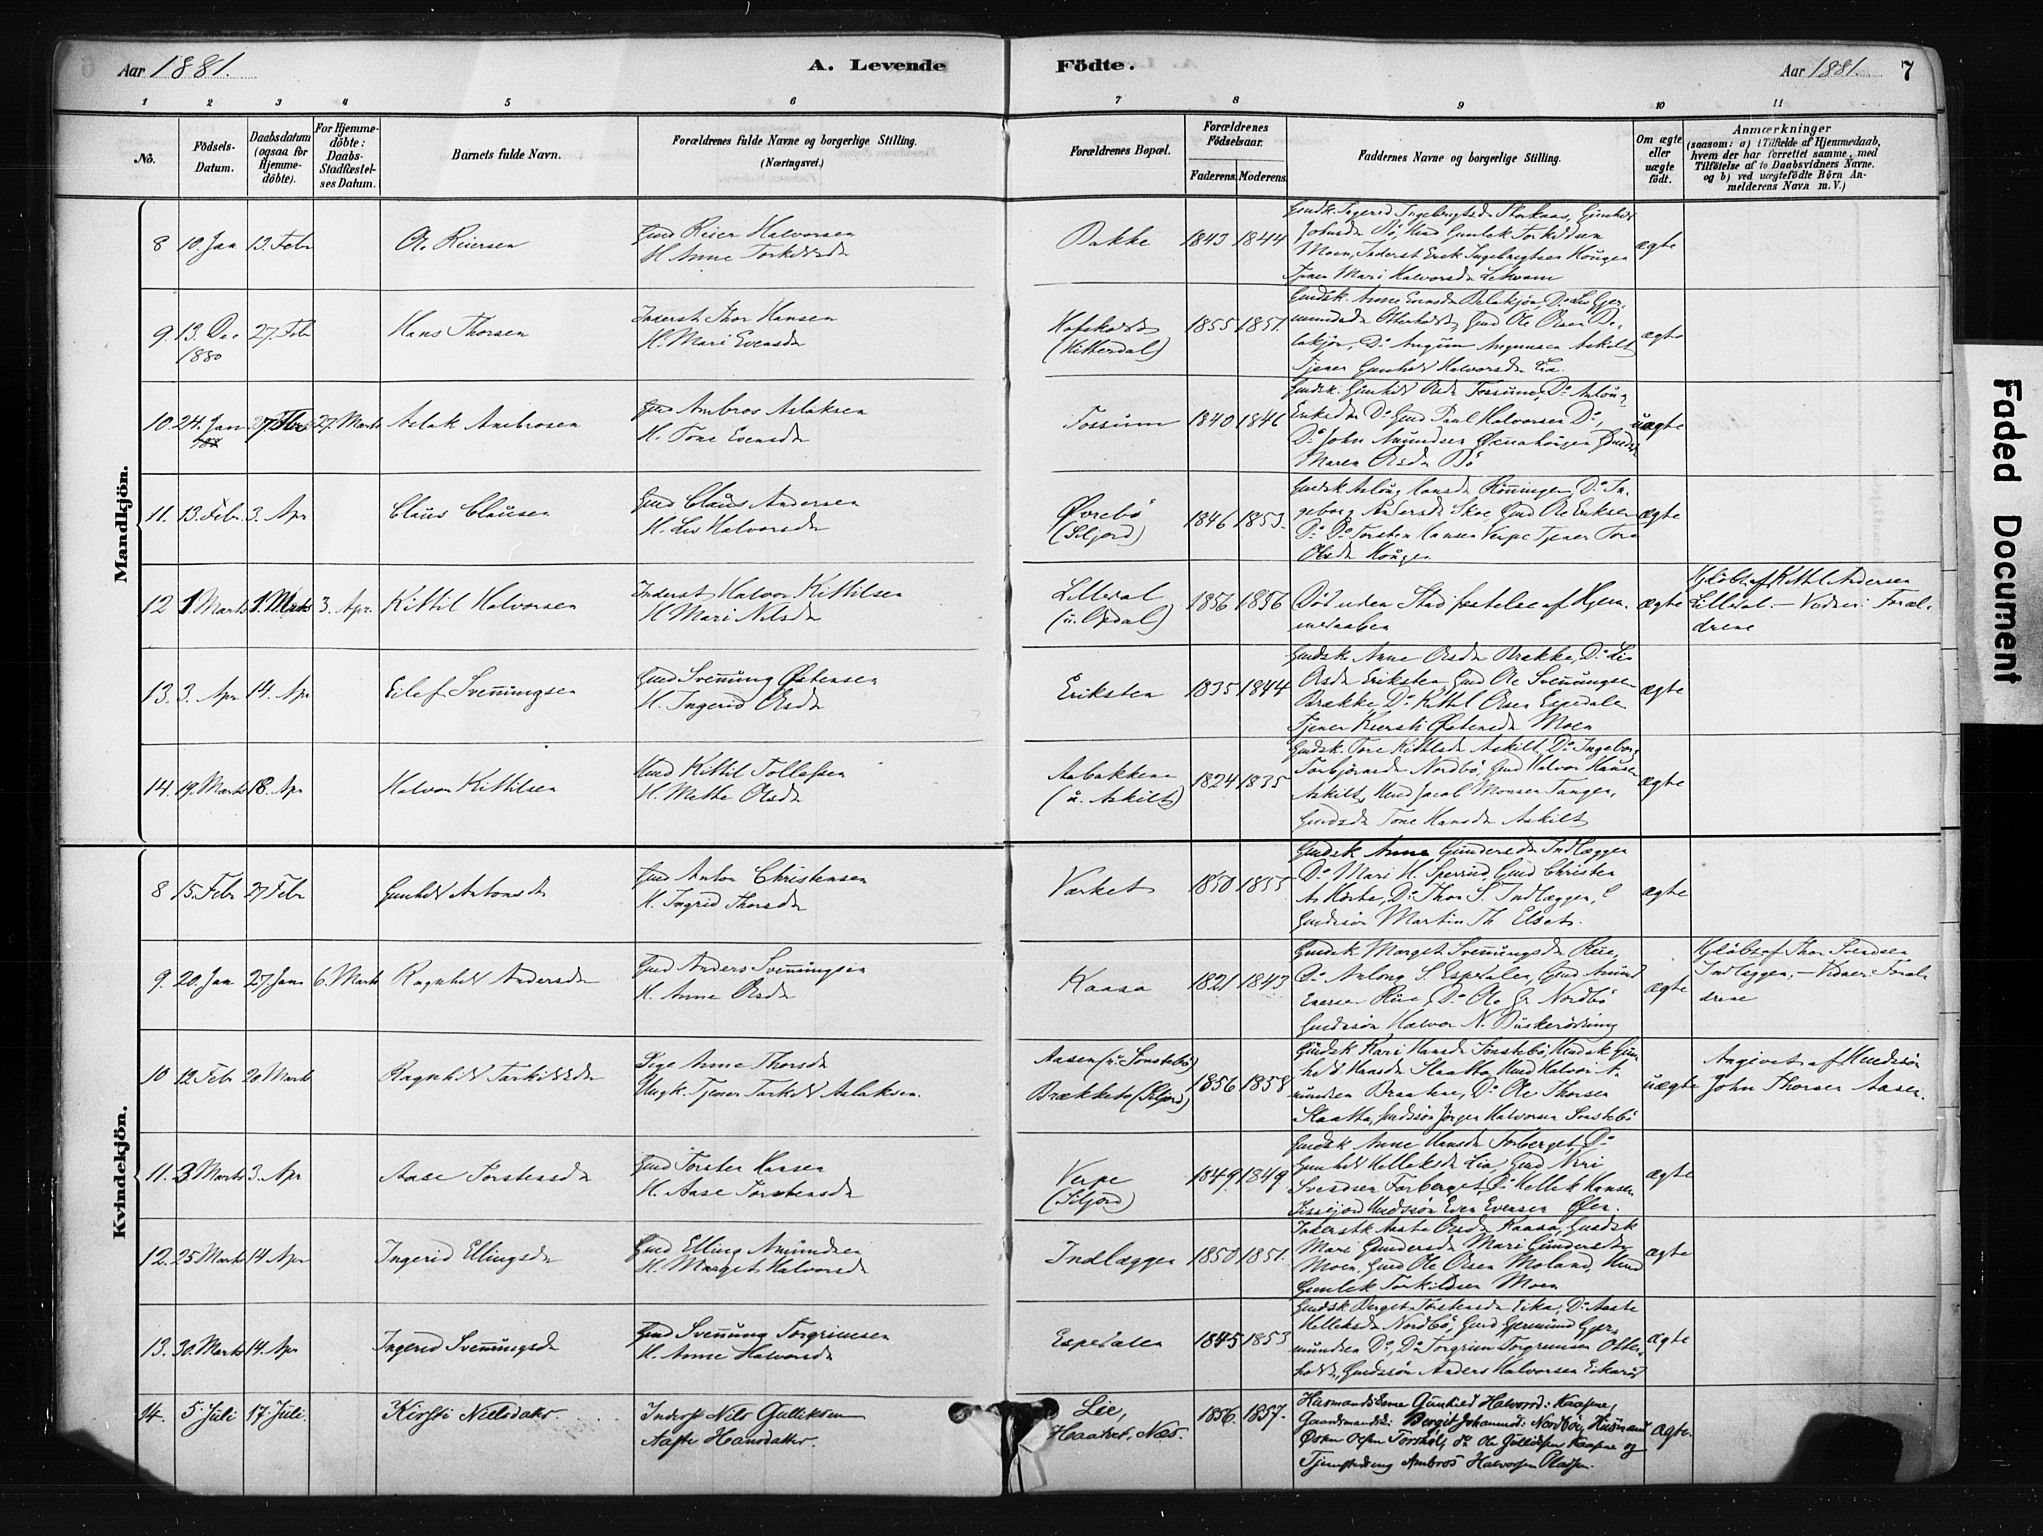 Aar 1881.
A. Levende
Födte.
Aar 1881.
7
1 2 3 4 5 6 7 8 9 10 11
No.
Födsels-Datum.
Daabsdatum (ogsaa for Hjemme-döbte).
For Hjemme-döbte: Daabs-Stadfæstel-ses Datum.
Barnets fulde Navn.
Forældrenes fulde Navne og borgerlige Stilling.
(Næringsvei.)
Forældrenes Bopæl.
Forældrenes Födselsaar.
Faderens. Moderens.
Faddernes Navne og borgerlige Stilling.
Om ægte eller uægte födt.
Anmærkninger
(saasom: a) i Tilfælde af Hjemmedaab,
hvem der har forrettet samme, med
Tilföielse af to Daabsvidners Navne.
og b) ved uægtefödte Börn An-
melderens Navn m. V.)
Mandkjön.
8 10. Jan 13. Febr Ole Reiersen
Gmd Reier Halvorsen
H. Anne Torkildsd
Bakke 1843 1844
Moen, Inderst Erik Ingebrigtsen Haugen
Tjener Mari Halvorsd
ægte
9 13. Dec 1880 27. Feb Hans Thorsen
Inderst Thor Hansen
H. Mari Evensd
(Hitterdal) 1855 1851.
Tjener Gunhild Halvorsd Lia
ægte
10. 24. Jan 27. Feb 27. Marts Aslak Ambrosen
Gmd Ambros Aslaksen
H. Tone Evensd
Fossum 1840 1846
Gmdsk. Gunhild Olsd Fossum, Do Aslaug
Eriksd Do Gmd Paul Halvorsen Do,
Maren Olsd Bö
uægte
11. 13. Febr. 3. Apr Claus Clausen
Gmd Claus Andersen
H. Liv Halvorsd
Øvrebö
(Siljord) 1846 1853.
Gmdsk Aslaug Hansd Rönningen, Do In-
geborg Andersd Skoe Gmd Ole Eriksen
Do Do Torsten Hansen Verpe Tjener Tone
Olsd Haugen
ægte
12 1 Marts 1. Marts 3. Apr. Kittil Halvorsen
Inderst Halvor Kittilsen
H Mari Nilsd
Lilledal
(u. Opdal) 1856 1856
Död uden Stadfæstelse af Hjem-
medaaben
ægte
Hjdöbt af Kittil Andersen
Lilledal. – Vidner: Foræl-
drene
13. 3. Apr 14. Apr Eilef Svenningsen
Gmd Svenning Østensen
H. Ingerid Olsd
Eriksten 1835 1844
Gmdsk Anne Olsd Brække, Do Liv
Olsd Eriksten, Gmd Ole Svenningsen
Brække, Do Kittil Olsen Espedalen
Tjener Kiersti Østensd Moen
ægte
14. 19. Marts 18. Apr Halvor Kittilsen
Hmd Kittil Tollefsen
H. Mathe Olsd
Aabakkene
(u. Askilt) 1824 1835
Gmdsk. Tone Kittilsd Askilt, Do Ingeborg
Torbjörnsd Nordbö, Gmd Halvor Hansen
Askilt, Hmd Jacob Monsen Tangen,
Gmdsd Tone Hansd Askilt
ægte
Kvindekjön.
8 15. Febr 27 Febr Gunhild Antonsd
Gmd Anton Christensen
H. Ingrid Thorsd
Værket 1850 1855
Gmdsk Anne Gundersd Indlæggen
Do Mari H. Sperrud, Gmd Christen
A. Korte, Do Thor S. Indlæggen,
Gmdssön Martin Th.
ægte
9. 20. Jan 27. Jan 6. Marts Ragnhild Andersd
Gmd Anders Svenningsen
H. Anne Olsd
Kaasa 1821 1843
Gmdsk Marget Svenningsd Rue,
Do Aslaug S. Espedalen, Gmd Amund
Enersen Rue, Do Ole G. Nordbö
Gmdssön Halvor N.
ægte
Hjdöbt af Thor Svendsen
Indlæggen, – Vidner: Foræl-
drene
10 12 Febr 20 Marts Ragnhild Tarkildsd
Pige Anne Thorsd
Ungk. Tjener Tarkild Aslaksen.
Aasen (u. Sönstebö)
(Siljord) 1856 1858
Gmdsk Kari Hansd Sönstebö, Hmdsk Gun-
hild Hansd Slaatta, Hmd Halvor A-
mundsen Braatene, Do Ole Thorsen
Slaatta, Gmdssön Jörgen Halvorsen Sönstebö
uægte
Angivet af Hmdssön
John Thorsen Aasen.
11. 3 Marts 3. Apr Aase Torstensd
Gmd Torsten Hansen
H. Aase Torstensd
Verpe
(Siljord) 1849 1849
Gmdsk Anne Hansd Forberget, Do
Gunhild Helleksd Lia, Gmd Niri
Svendsen Forberget, Do Hellek Hansen
ægte
12. 25 Marts 14. Apr Ingerid Ellingsd
Gmd Elling Amundsen
H. Marget Halvorsd
Indlæggen 1850 1851.
Inderstk Aaste Olsd Kaasa, Gmdsk
Mari Gundersd Mari Gundersd
Moen, Gmd Ole Olsen Moland, Hmd
Gunlek Torkildsen Moen
ægte
13. 30. Marts 14. Apr Ingerid Svenningsd
Gmd Svenning Torgrimsen
H. Anne Halvorsd
Espedalen 1845 1853
Gmdsk Berget Torstensd Eika, Do Aaste
Helleksd Nordbö, Gmd Gjermund Gjer-
mundsen Do, Do Torgrim Torgrimsen Otter-
holt, Gmdssön Anders Halvorsen
ægte
14. 5 Juli 17. Juli. Kirsti Nielsdatter
Inderst Nils Gulliksen
Aaste Hansdatter.
Lie,
Haatvet, Næs. 1856. 1857.
Husmandskone Gunhild Halvorsd: Kaasene,
Gaardmandsk: Bergit Johannesd: Nordbö, Husmand
ægte.
Faded Document